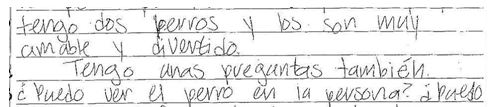 tengo dos perros y los son muy
amable y divertido.
Tengo unas preguntas también.
¿Puedo ver el perro en la persona? ¿puedo